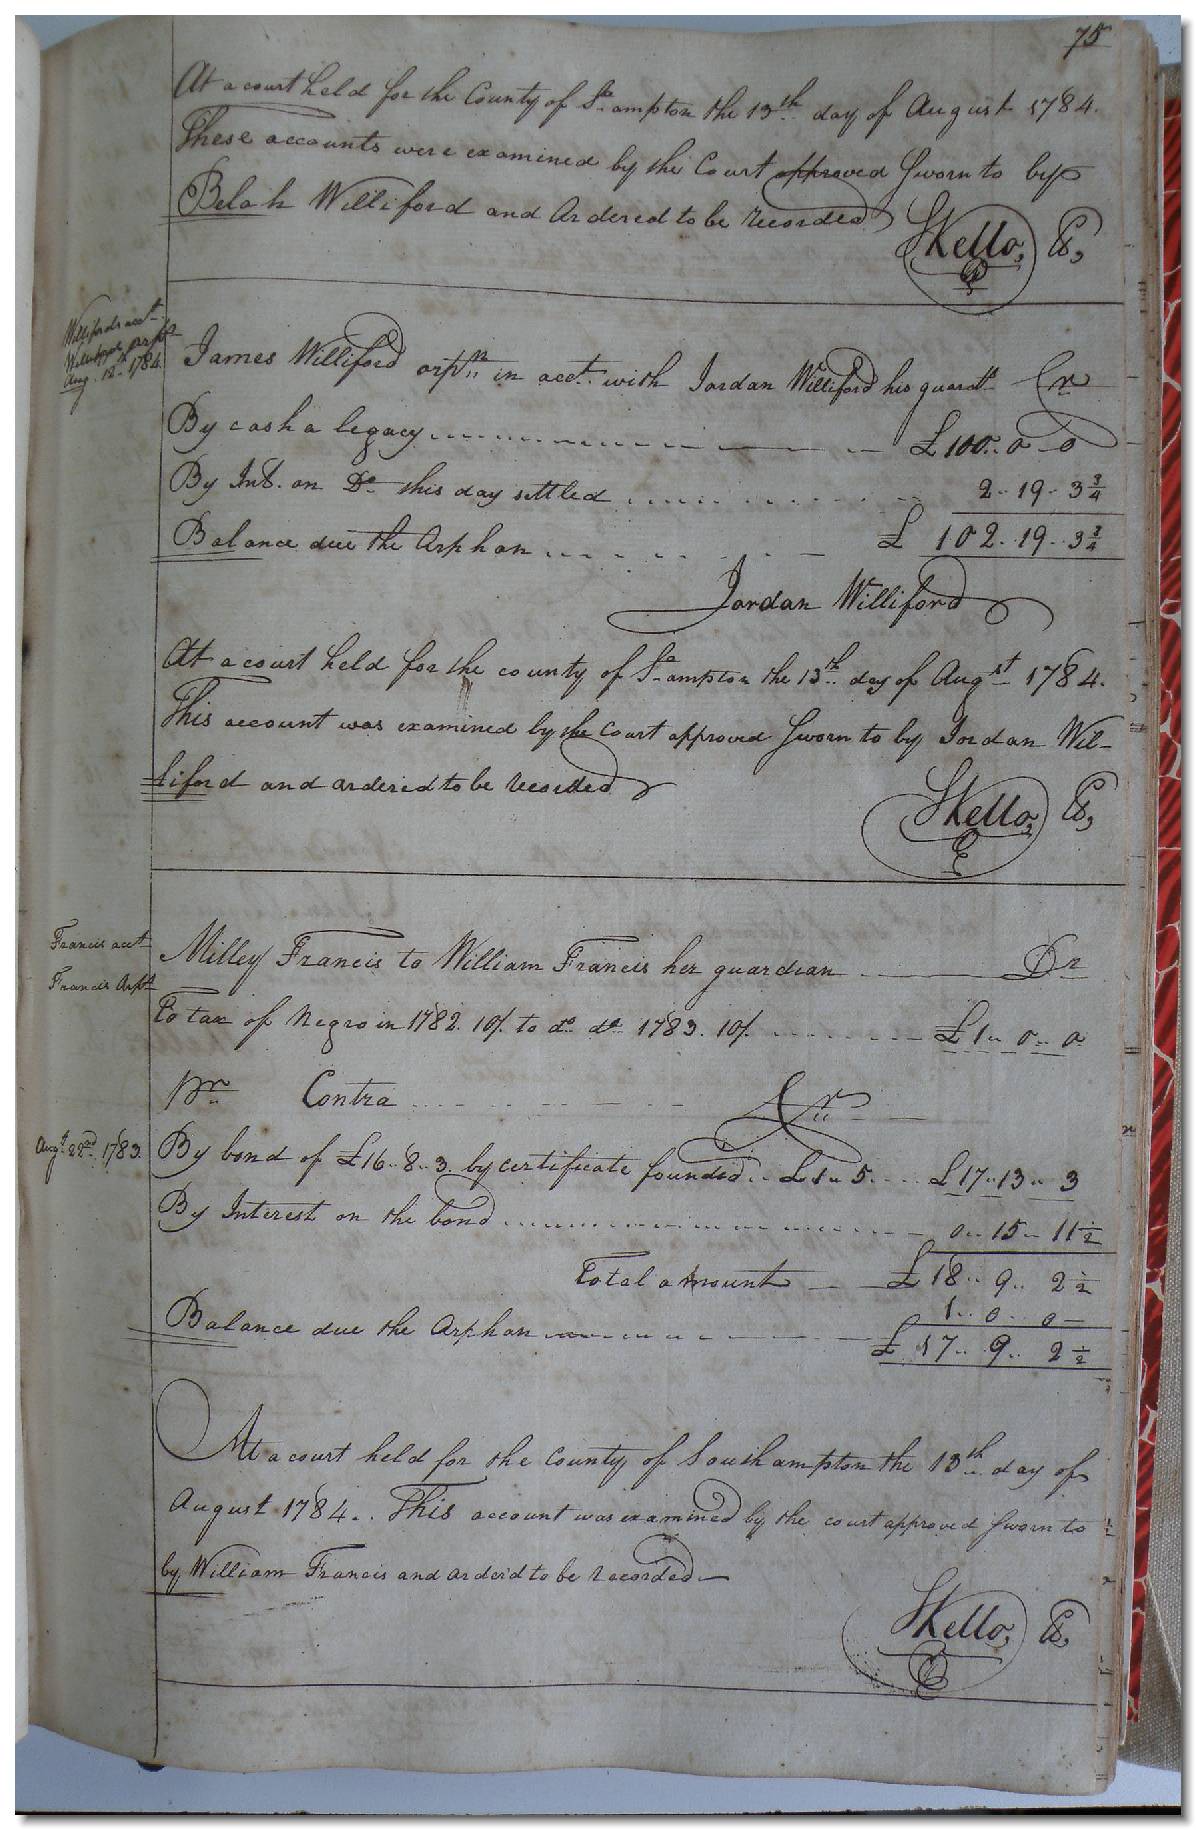 75
At a court held for the County of So.ampton the 13th day of August 1784.
These accounts were examined by the Court approved Sworn to by
Belah Williford and Ordered to be recorded
SKello, Cs,
Williford's acct
Aug. 12th 1784
James Williford orpn in acct. with Jordan Williford his guardn Cr
By cash a legacy £100.. 0 0
By Int. on Do this day settled 2.. 19.. 3 3/4
Balance due the Orphan £ 102.. 19.. 3 3/4
Jordan Williford
At a court held for the county of So.ampton the 13th day of Augst 1784.
This account was examined by the Court approved Sworn to by Jordan Wil-
liford and ordered to be recorded
SKello, Cs,
Francis acct
Francis Orpn
Milley Francis to William Francis her guardian Dr
To tax of Negro in 1782. 10/. to do do 1783. 10/. £1.. 0.. 0
Pr Contra Cr
Augt 22nd 1783.
By bond of £16.. 8.. 3. by certificate founded.. £1.. 5. £17..13.. 3
By Interest on the bond 0.. 15.. 11 1/2
Total amount £18.. 9.. 2 1/2
1.. 0.. 0
Balance due the Orphan £ 17.. 9.. 2 1/2
At a court held for the County of Southampton the 13th day of
August 1784.. This account was examined by the court approved Sworn to
by William Francis and order'd to be recorded
SKello, Cs,